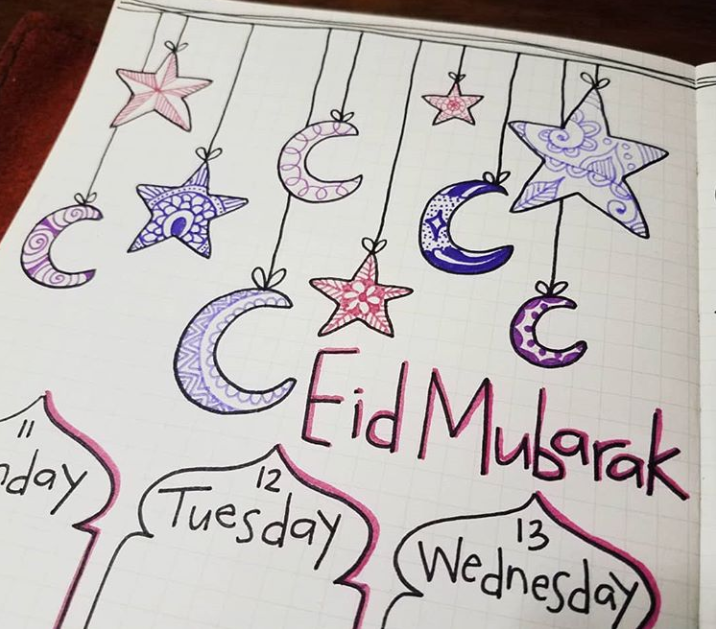 Eid Mubarak
11
nday
12
Tuesday
13
Wednesday